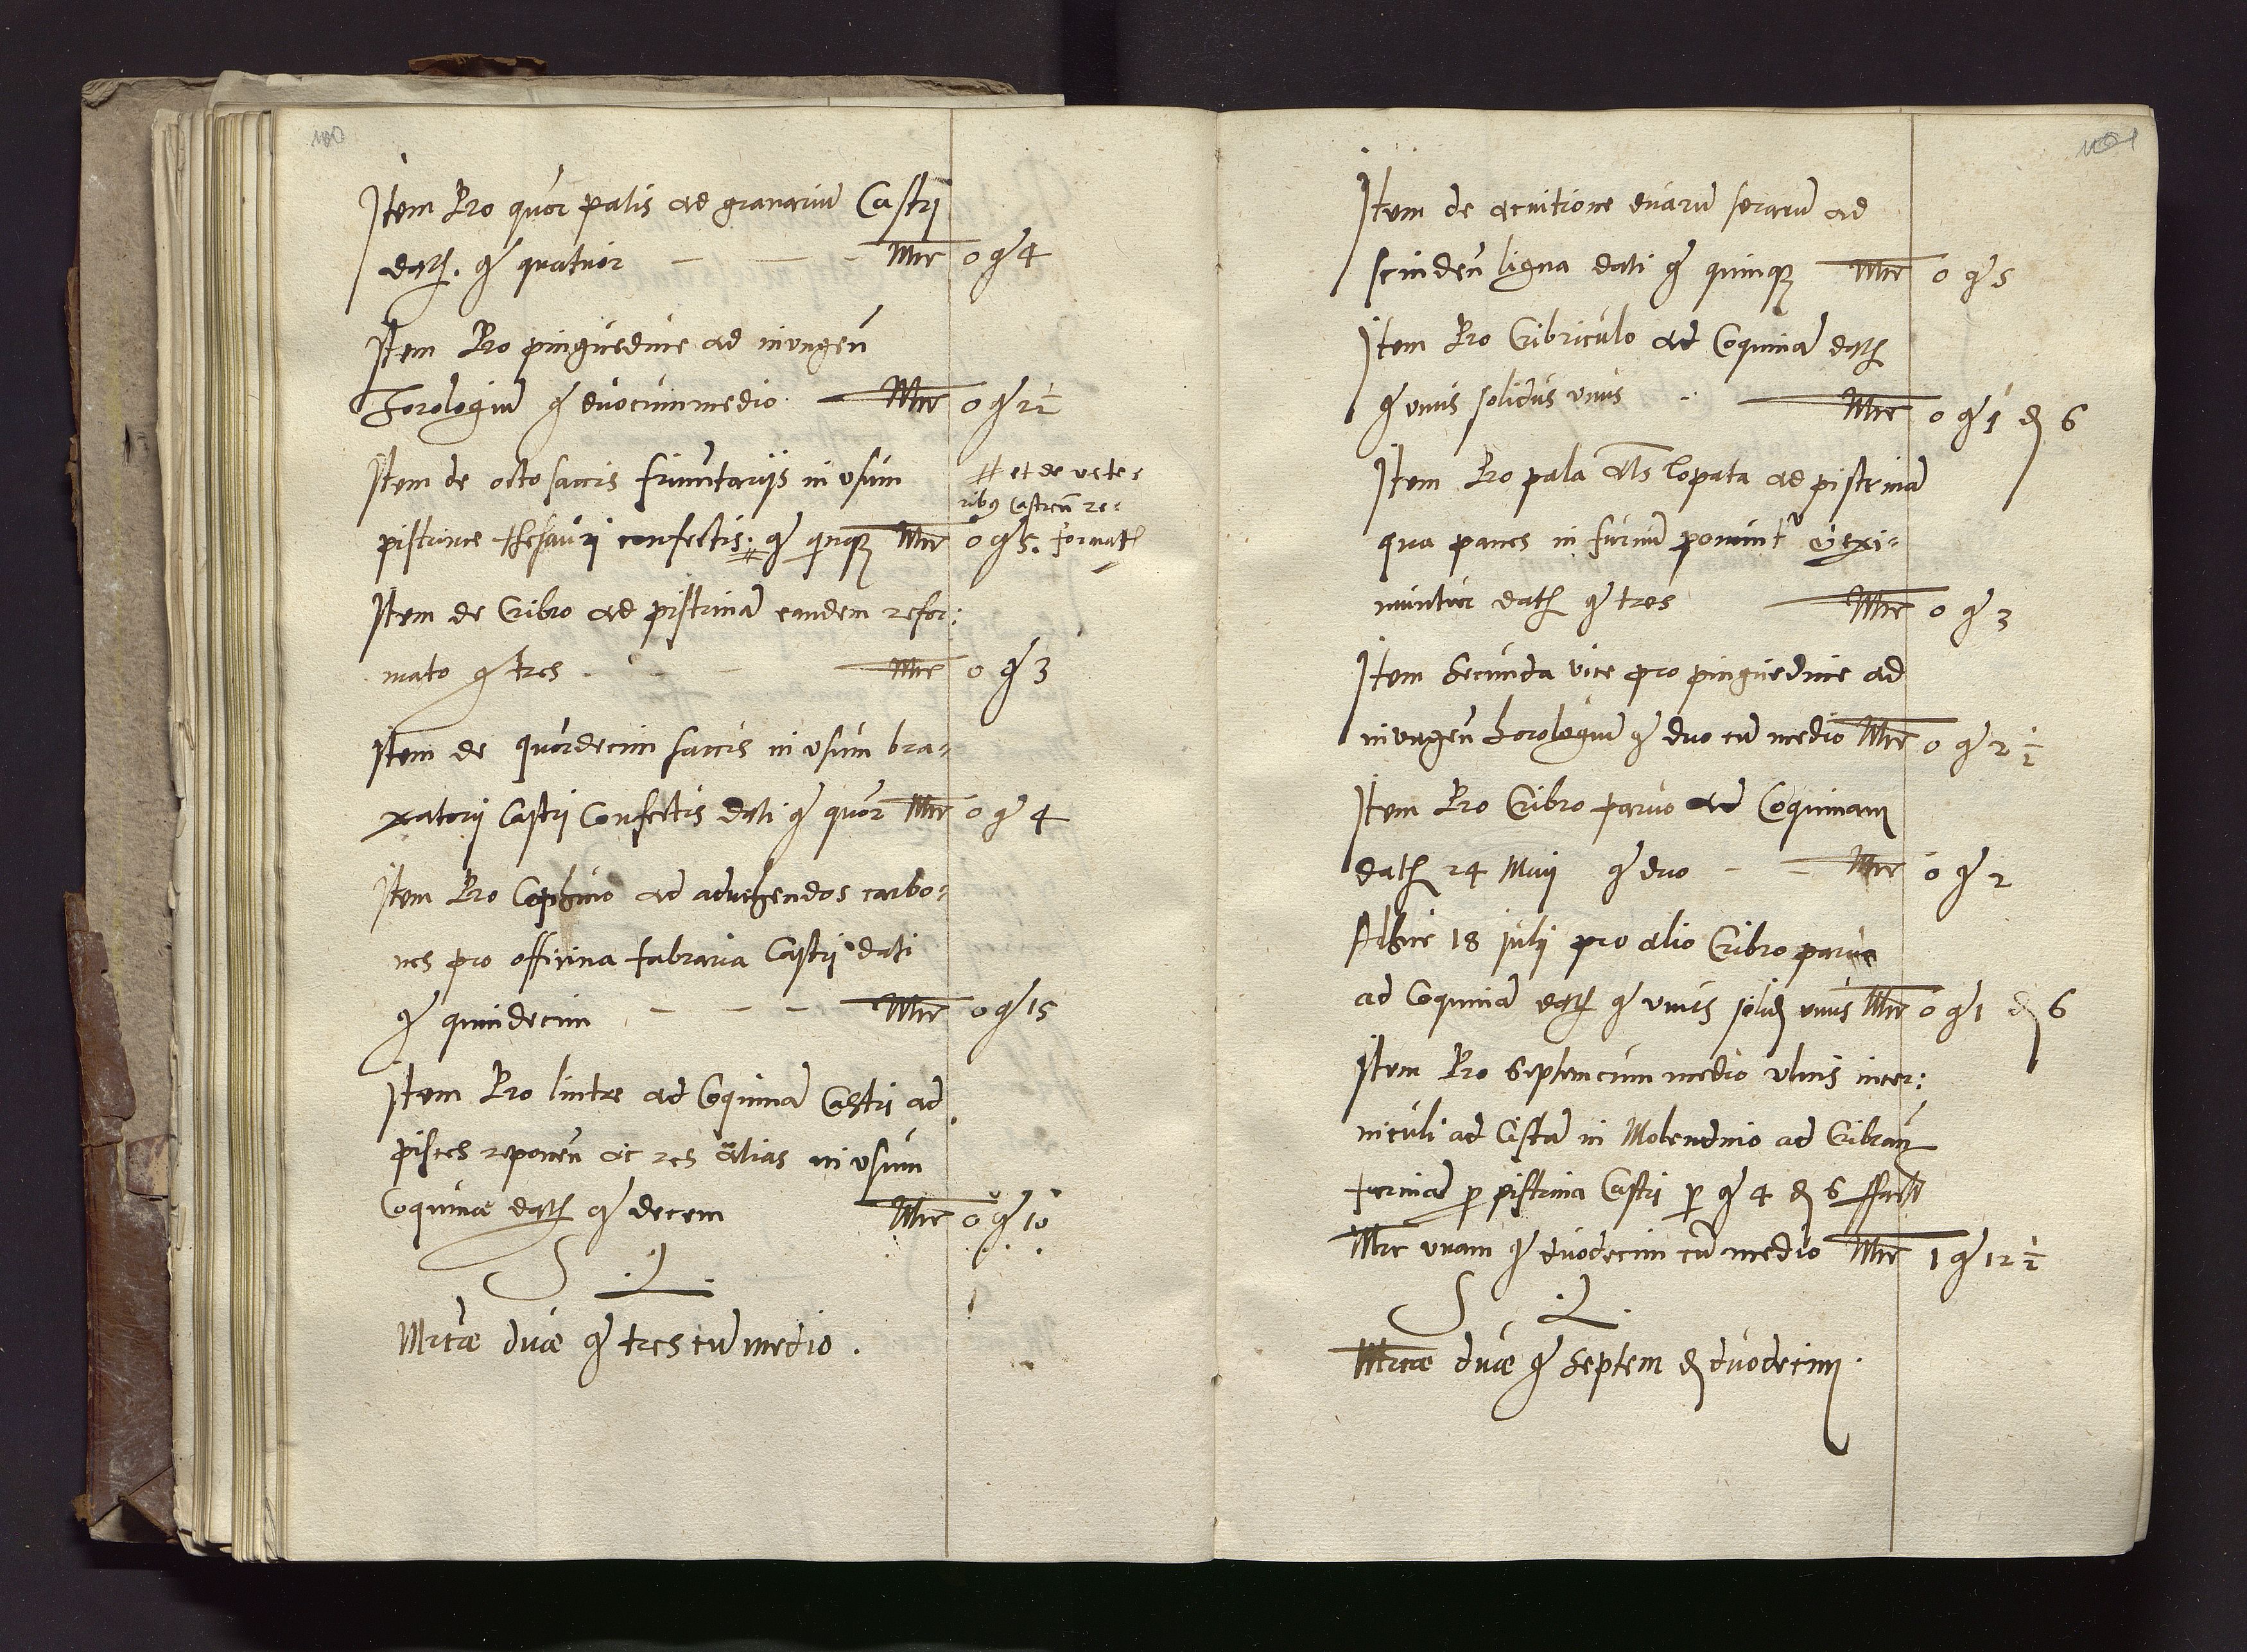 100
Item Pro quor palis ad granariu Castri
dath. g quatuor Mrc 0 g 4
Item Pro pinguedine ad invngen
horologiu g duocummedio Mrc 0 g 2½
Item de octo saccis frumentarijs in vsum
# et de vete-
ribus castren re-
pistrinæ thesauri confectis. # g quinq Mrc 0 g 5. format
Item de Cribro ad pistrina eandem refor:
mato g tres Mrc 0 g 3
Item de quordecim saccis in vsum bra-
xatorij Castri Confectis dati g quor Mrc 0 g 4
Item Pro Cophino ad advehendos carbo-
nes pro officina fabraria Castri dati
g quindecim Mrc 0 g 15
Item Pro lintre ad Coquina Castri ad
pisces reponen ac res alias in vsum
Coquinæ dath g decem Mrc 0 g 10
S L
Mrcæ duæ g tres cu medio.
101
Item de acuitione duaru serraru ad
scinden ligna dati g quinq Mrc 0 g 5
Item Pro Cribriculo ad Coquina dath
g vnus solidus vnus Mrc 0 g 1 d 6
Item Pro pala als lopata ad pistrina
qua panes in furnu ponunt exi-
muntur dath g tres Mrc 0 g 3
Item Secunda vice pro pinguedine ad
invngen horologiu g duo cu medio Mrc 0 g 2½
Item Pro Cribro paruo ad Coquinam
dath 24 Maij g duo Mrc 0 g 2
18 julij pro alio Cribro paruo
ad Coquina dath g vnus solid vnus Mrc 0 g 1 d 6
Item Pro Septemcum medio vlnis incer:
niculi ad Cista in Molendino ad Cribran
farina p pistrina Castri p g 4 d 6 ffacit
Mrc vnam g duodecim cu medio Mrc 1 g 12½
S L
Mrcæ duæ g Septem d duodecim.